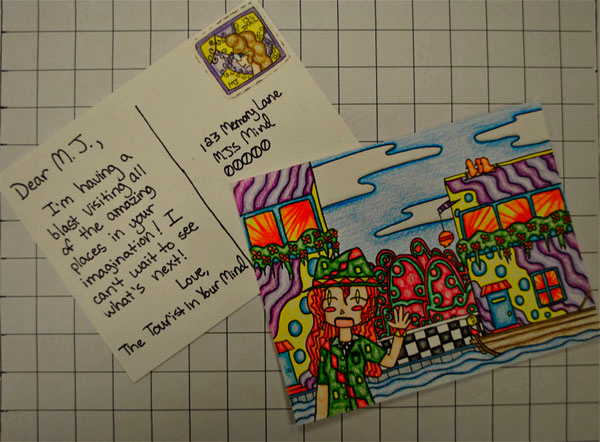 Dear M.J.,
I'm having a
blast visiting all
of the amazing
places in your
imagination! I
can't wait to see
what's next!
Love,
The Tourist in Your Mind
123 Memory Lane
MJS Mind
00000